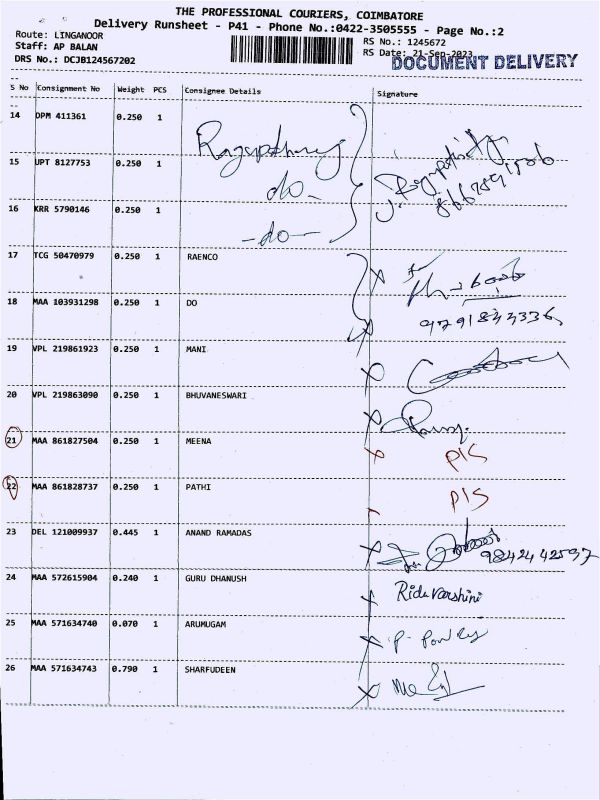 THE PROFESSIONAL COURIERS, COIMBATORE
Delivery Runsheet - P41 - Phone No.:0422-3505555 - Page No.:2
Route: LINGANOOR
RS No.: 1245672
Staff: AP BALAN
RS Date: 21-Sep-2023
DRS No.: DCJB124567202
DOCUMENT DELIVERY
S No Consignment No Weight PCS Consignee Details Signature
14 DPM 411361 0.250 1
15 UPT 8127753 0.250 1 do
16 KRR 5790146 0.250 1 -do-
17 TCG 50470979 0.250 1 RAENCO
18 MAA 103931298 0.250 1 DO 9791844336
19 VPL 219861923 0.250 1 MANI
20 VPL 219863090 0.250 1 BHUVANESWARI
21 MAA 861827504 0.250 1 MEENA PIS
22 MAA 861828737 0.250 1 PATHI PIS
23 DEL 121009937 0.445 1 ANAND RAMADAS 9842442597
24 MAA 572615904 0.240 1 GURU DHANUSH
25 MAA 571634740 0.070 1 ARUMUGAM
26 MAA 571634743 0.790 1 SHARFUDEEN